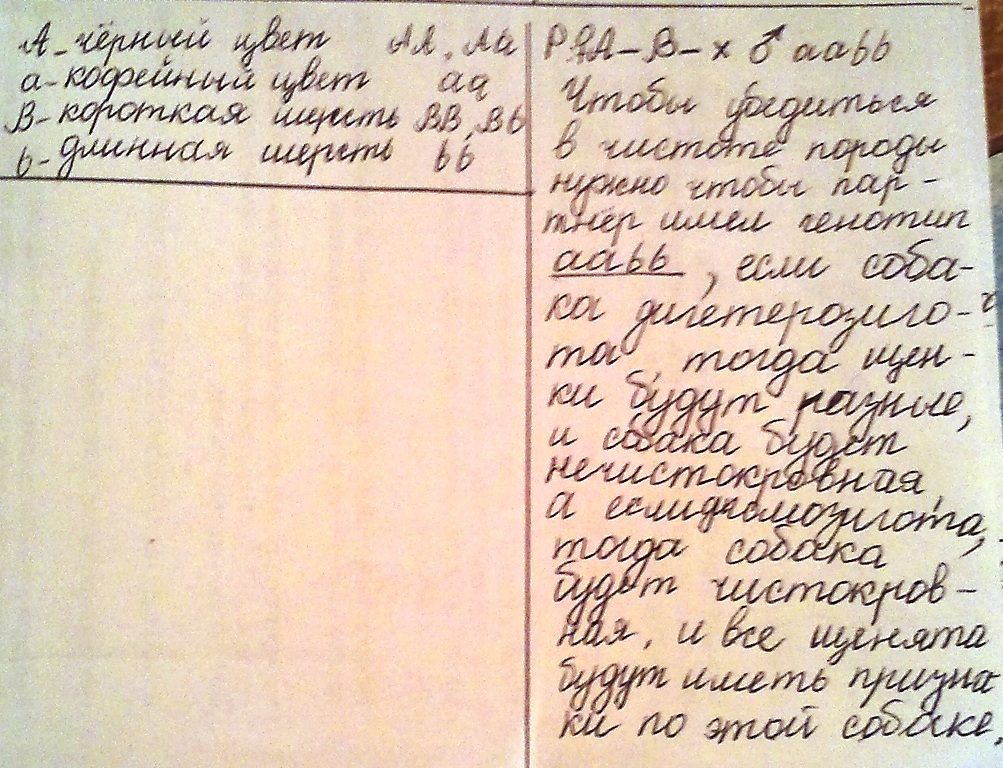 А - чёрный цвет АА, Аа
а - кофейный цвет аа
В - короткая шерсть ВВ, Вb
b - длинная шерсть bb
Р ♀А - В - х ♂ ааbb
Чтобы убедиться
в чистоте породы
нужно чтобы пар -
тнёр имел генотип
ааbb , если соба-
ка дигетерозиго-
та, тогда щен -
ки будут разные,
и собака будет
нечистокровная,
а если дигомозигота,
тогда собака
будет чистокров -
ная, и все щенята
будут иметь призна
ки по этой собаке.